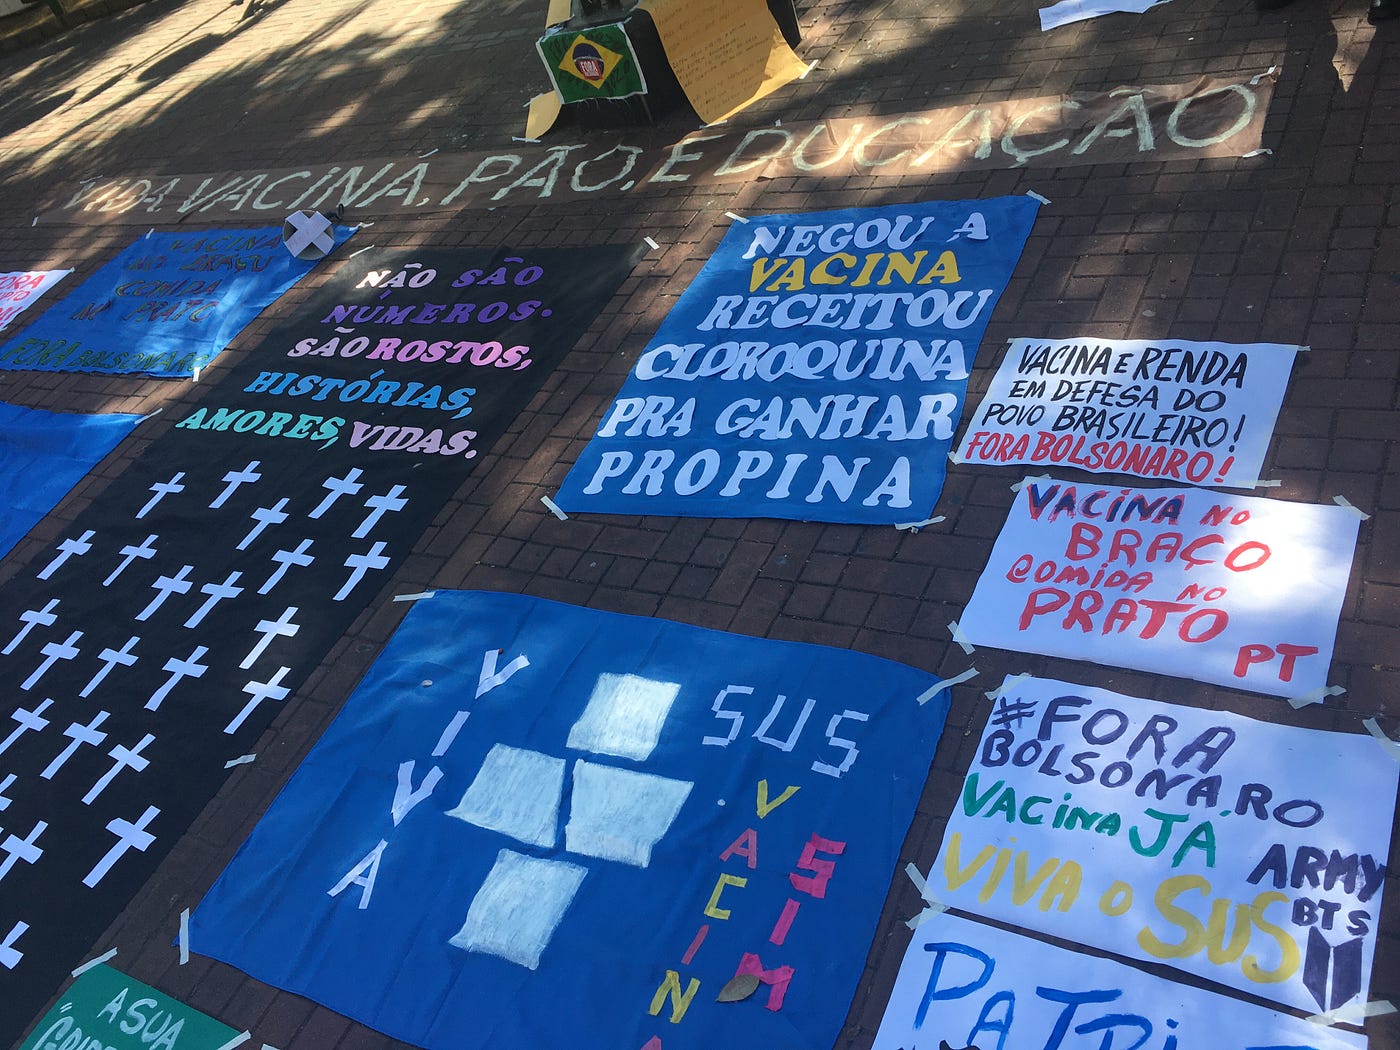 FORA
VIDA, VACINA, PÃO, E EDUCAÇÃO
VACINA
NO BRAÇU
COMIDA
NO PRATO
FORA BOLSONARO
NÃO SÃO
NÚMEROS.
SÃO ROSTOS,
HISTÓRIAS,
AMORES, VIDAS.
NEGOU A
VACINA
RECEITOU
CLOROQUINA
PRA GANHAR
PROPINA
VACINA E RENDA
EM DEFEGA DO
POVO BRASILEIRO!
FORA BOLSONARO!
VACINA NO
BRAÇO
COMIDA NO
PRATO
PT
VIVA
SUS
VACINA
SIM
#FORA
BOLSONARO
VACINA JÁ
VIVA O SUS
ARMY
BTS
A SUA